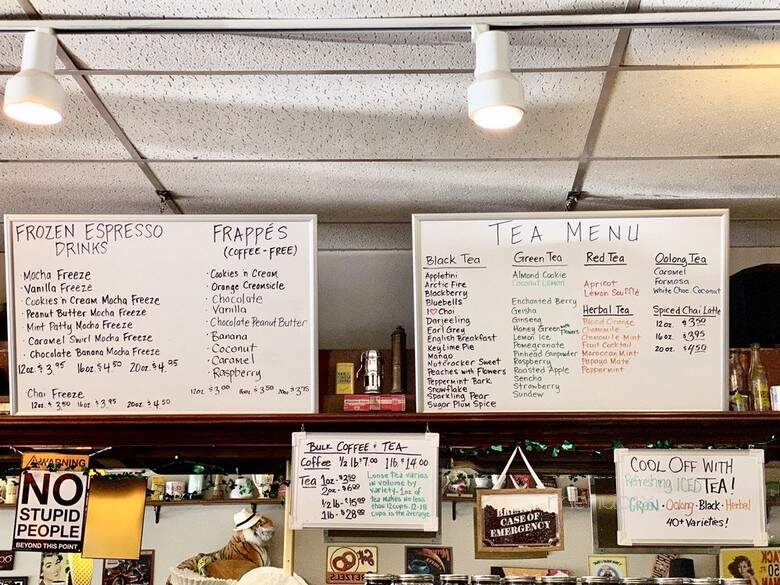 FROZEN ESPRESSO
DRINKS
Mocha Freeze
Vanilla Freeze
Cookies 'n Cream Mocha Freeze
Peanut Butter Mocha Freeze
Mint Patty Mocha Freeze
Caramel Swirl Mocha Freeze
Chocolate Banana Mocha Freeze
12oz. $3.95 16oz. $4.50 20oz. $4.95
Chai Freeze
12oz. $3.50 16oz. $3.95 20oz. $4.50
FRAPPÉS
(COFFEE-FREE)
Cookies 'n Cream
Orange Creamsicle
Chocolate
Vanilla
Chocolate Peanut Butter
Banana
Coconut
Caramel
Raspberry
12oz. $3.00 16oz. $3.50 20oz. $3.75
TEA MENU
Black Tea
Appletini
Arctic Fire
Blackberry
Bluebells
I ♡ Chai
Darjeeling
Earl Grey
English Breakfast
Key Lime Pie
Mango
Nutcracker Sweet
Peaches with Flowers
Peppermint Bark
Snowflake
Sparkling Pear
Sugar Plum Spice
Green Tea
Almond Cookie
Coconut Lemon
Enchanted Berry
Geisha
Ginseng
Honey Green with Flowers
Lemon Ice
Pomegranate
Pinhead Gunpowder
Raspberry
Roasted Apple
Sencha
Strawberry
Sundew
Red Tea
Apricot
Lemon Soufflé
Herbal Tea
Blood Orange
Chamomile
Chamomile Mint
Fruit Cocktail
Moroccan Mint
Papaya Mate
Peppermint
Oolong Tea
Caramel
Formosa
White Choc. Coconut
Spiced Chai Latte
12oz. $3.50
16oz. $3.95
20oz. $4.50
WARNING
NO
STUPID
PEOPLE
BEYOND THIS POINT
BULK COFFEE & TEA
Coffee ½ lb $7.00 1 lb $14.00
Tea 1oz. $3.50
2oz. $6.00
½ lb. $15.00
1lb. $28.00
Loose tea varies
in volume by
variety. 1oz of
tea makes no less
than 12 cups. 12-18
cups is the average.
CASE OF
EMERGENCY
COOL OFF WITH
Refreshing ICED TEA!
GREEN · Oolong · Black · Herbal
40+ Varieties!
PRETZELS